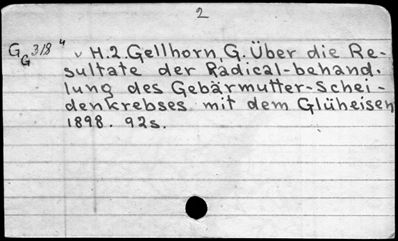 2
G G 318 4 v H.2. Gellhorn, G. Über die Re-
sultate der Radical-behand.
lung des Gebärmutter-Schei-
denkrebses mit dem Glüheisen
1898. 92s.